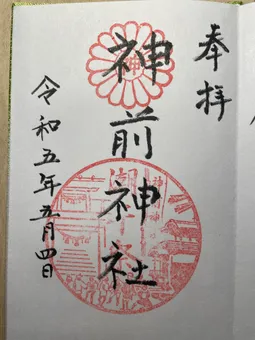 奉拝
神前神社
令和五年五月四日